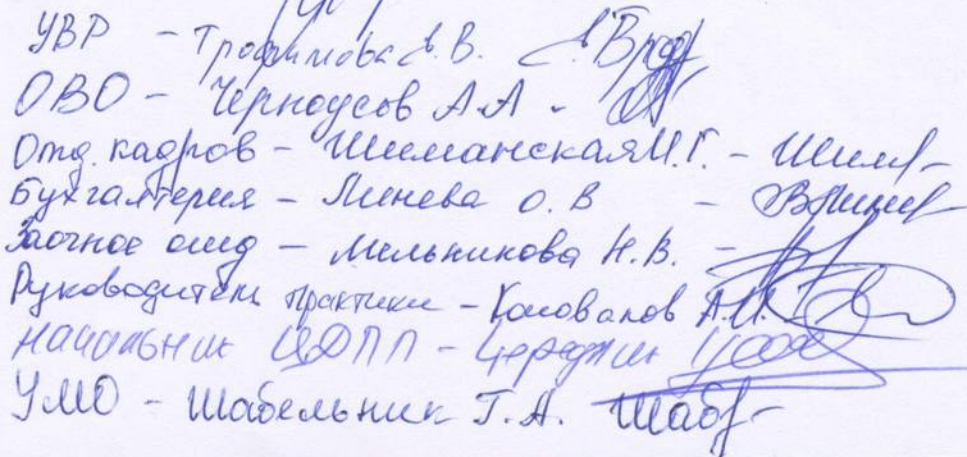 УВР - Трофимова Е.В.
ОВО - Черноусов А.А -
Отд. кадров - Шиманская М.Г. -
Бухгалтерия - Линева О.В -
Заочное отд - Мельникова Н.В. -
Руководитель практики - Коновалов А.И.
Начальник ЦДПП -
УМО - Шабельник Т.А.